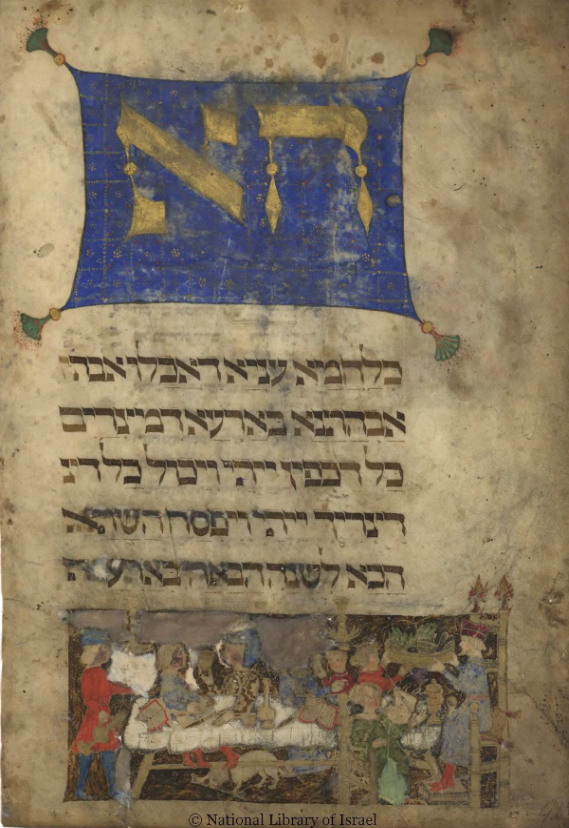 הא
כלחמא עניא דאכלו אבה
אבהתנא בארעא דמיצרים
כל דכפין ייתי ויכול כל דצ
דצריך ייתי ויפסח השתא
הכא לשנה הבאה בארעא
© National Library of Israel